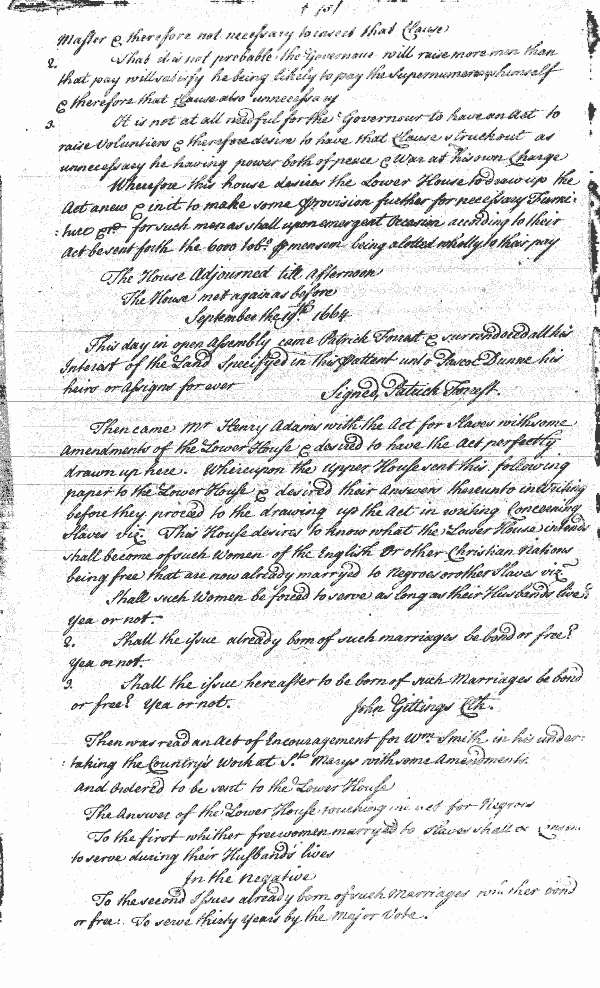 Master & therefore not necessary to insert that Clause
2. That it is not probable the Governour will raise more men than
that pay will satisfy he being likely to pay the Supernumerary himself
& therefore that Clause also unnecessary
3. It is not at all needful for the Governour to have an Act to
raise Voluntiers & therefore desire to have that Clause struck out as
unnecessary he having power both of peace & War at his own Charge
Wherefore this house desires the Lower House to draw up the
Act anew & in it to make some provision further for necessary Furni:
:ture &ca for such men as shall upon emergent Occasion according to their
Act be sent forth the 600 tobo p mensem being aloted wholly to their pay
The House Adjourned till Afternoon
The House met again as before
September the 19th 1664
This day in open Assembly came Patrick Forrest & surrendered all his
Interest of the Land Specifyed in this Pattent unto Pascoe Dunne his
heirs or Assigns for ever Signed, Patrick Forrest.
Then came Mr Henry Adams with the Act for Slaves with some
Amendments of the Lower House & desired to have the Act perfectly
drawn up here. Whereupon the Upper House sent this following
paper to the Lower House & desired their Answers thereunto in Writing
before they proceed to the drawing up the Act in writing Concerning
Slaves vizt This House desires to know what the Lower House intends
shall become of such Women of the English Or other Christian Nations
being free that are now already marryed to Negroes or other Slaves vizt
Shall such Women be forced to serve as long as their Husbands live?
yea or not.
2. Shall the issue already born of such marriages be bond or free?
yea or not.
3. Shall the issue hereafter to be born of such Marriages be bond
or free? yea or not. John Gittings Clk.
Then was read an Act of Encouragement for Wm. Smith in his under:
:taking the Country's Work at St Marys with some Amendments
And Ordered to be sent to the Lower House
The Answer of the Lower House touching the act for Negroes
To the first whither free women marryed to Slaves shall be
to serve during their Husbands lives
In the Negative
To the second Issues already born of such Marriages whither bond
or free. To serve thirty Years by the Major Vote.